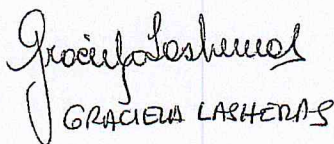 Graciela Lasheras
GRACIELA LASHERAS